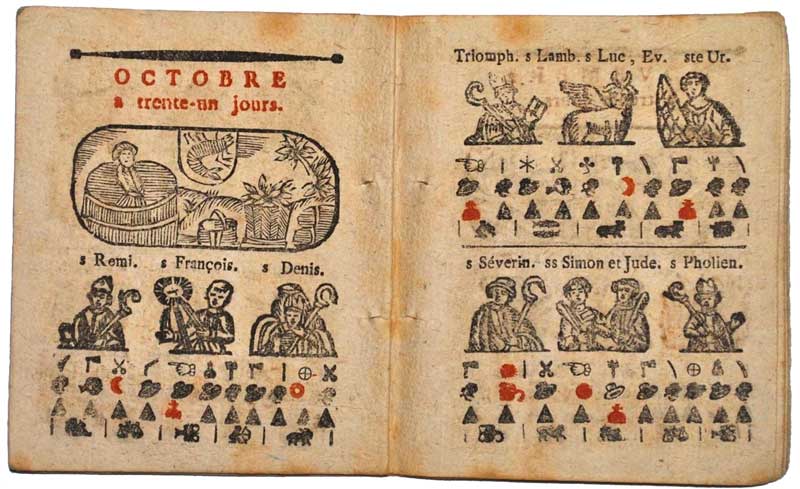 OCTOBRE
a trente-un jours.
s Remi. s François. s Denis.
Triomph. s Lamb. s Luc, Ev. ste Ur.
s Séverin. ss Simon et Jude. s Pholien.